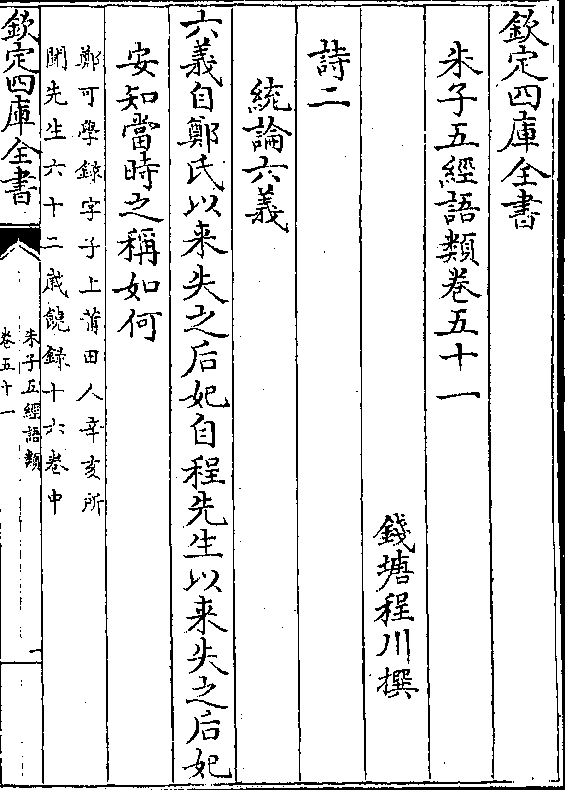 欽定四庫全書
朱子五經語類卷五十一
錢塘程川撰
詩二
統論六義
六義自鄭氏以来失之后妃自程先生以来失之后妃
安知當時之稱如何
鄭可學録字子上莆田人辛亥所
聞先生六十二歲饒録十六卷中
欽定四庫全書
朱子五經語類
卷五十一
一